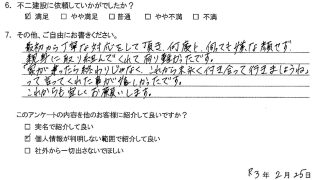 6. 不二建設に依頼していかがでしたか？
☑ 満足 □ やや満足 □ 普通 □ やや不満 □ 不満
7. その他、ご自由にお書きください。
最初から丁寧な対応をして頂き、何度も、何でも嫌な顔せず、
親身に取り組んでくれて有り難かったです。
「家が建ったら終わりじゃなく、これから末永く付き合って行きましょうね」
って言ってくれた事が嬉しかったです。
これからも宜しくお願いします。
このアンケートの内容を他のお客様に紹介して良いですか？
□ 実名で紹介して良い
☑ 個人情報が判明しない範囲で紹介して良い
□ 社外から一切出さないでほしい
R3年 2月25日